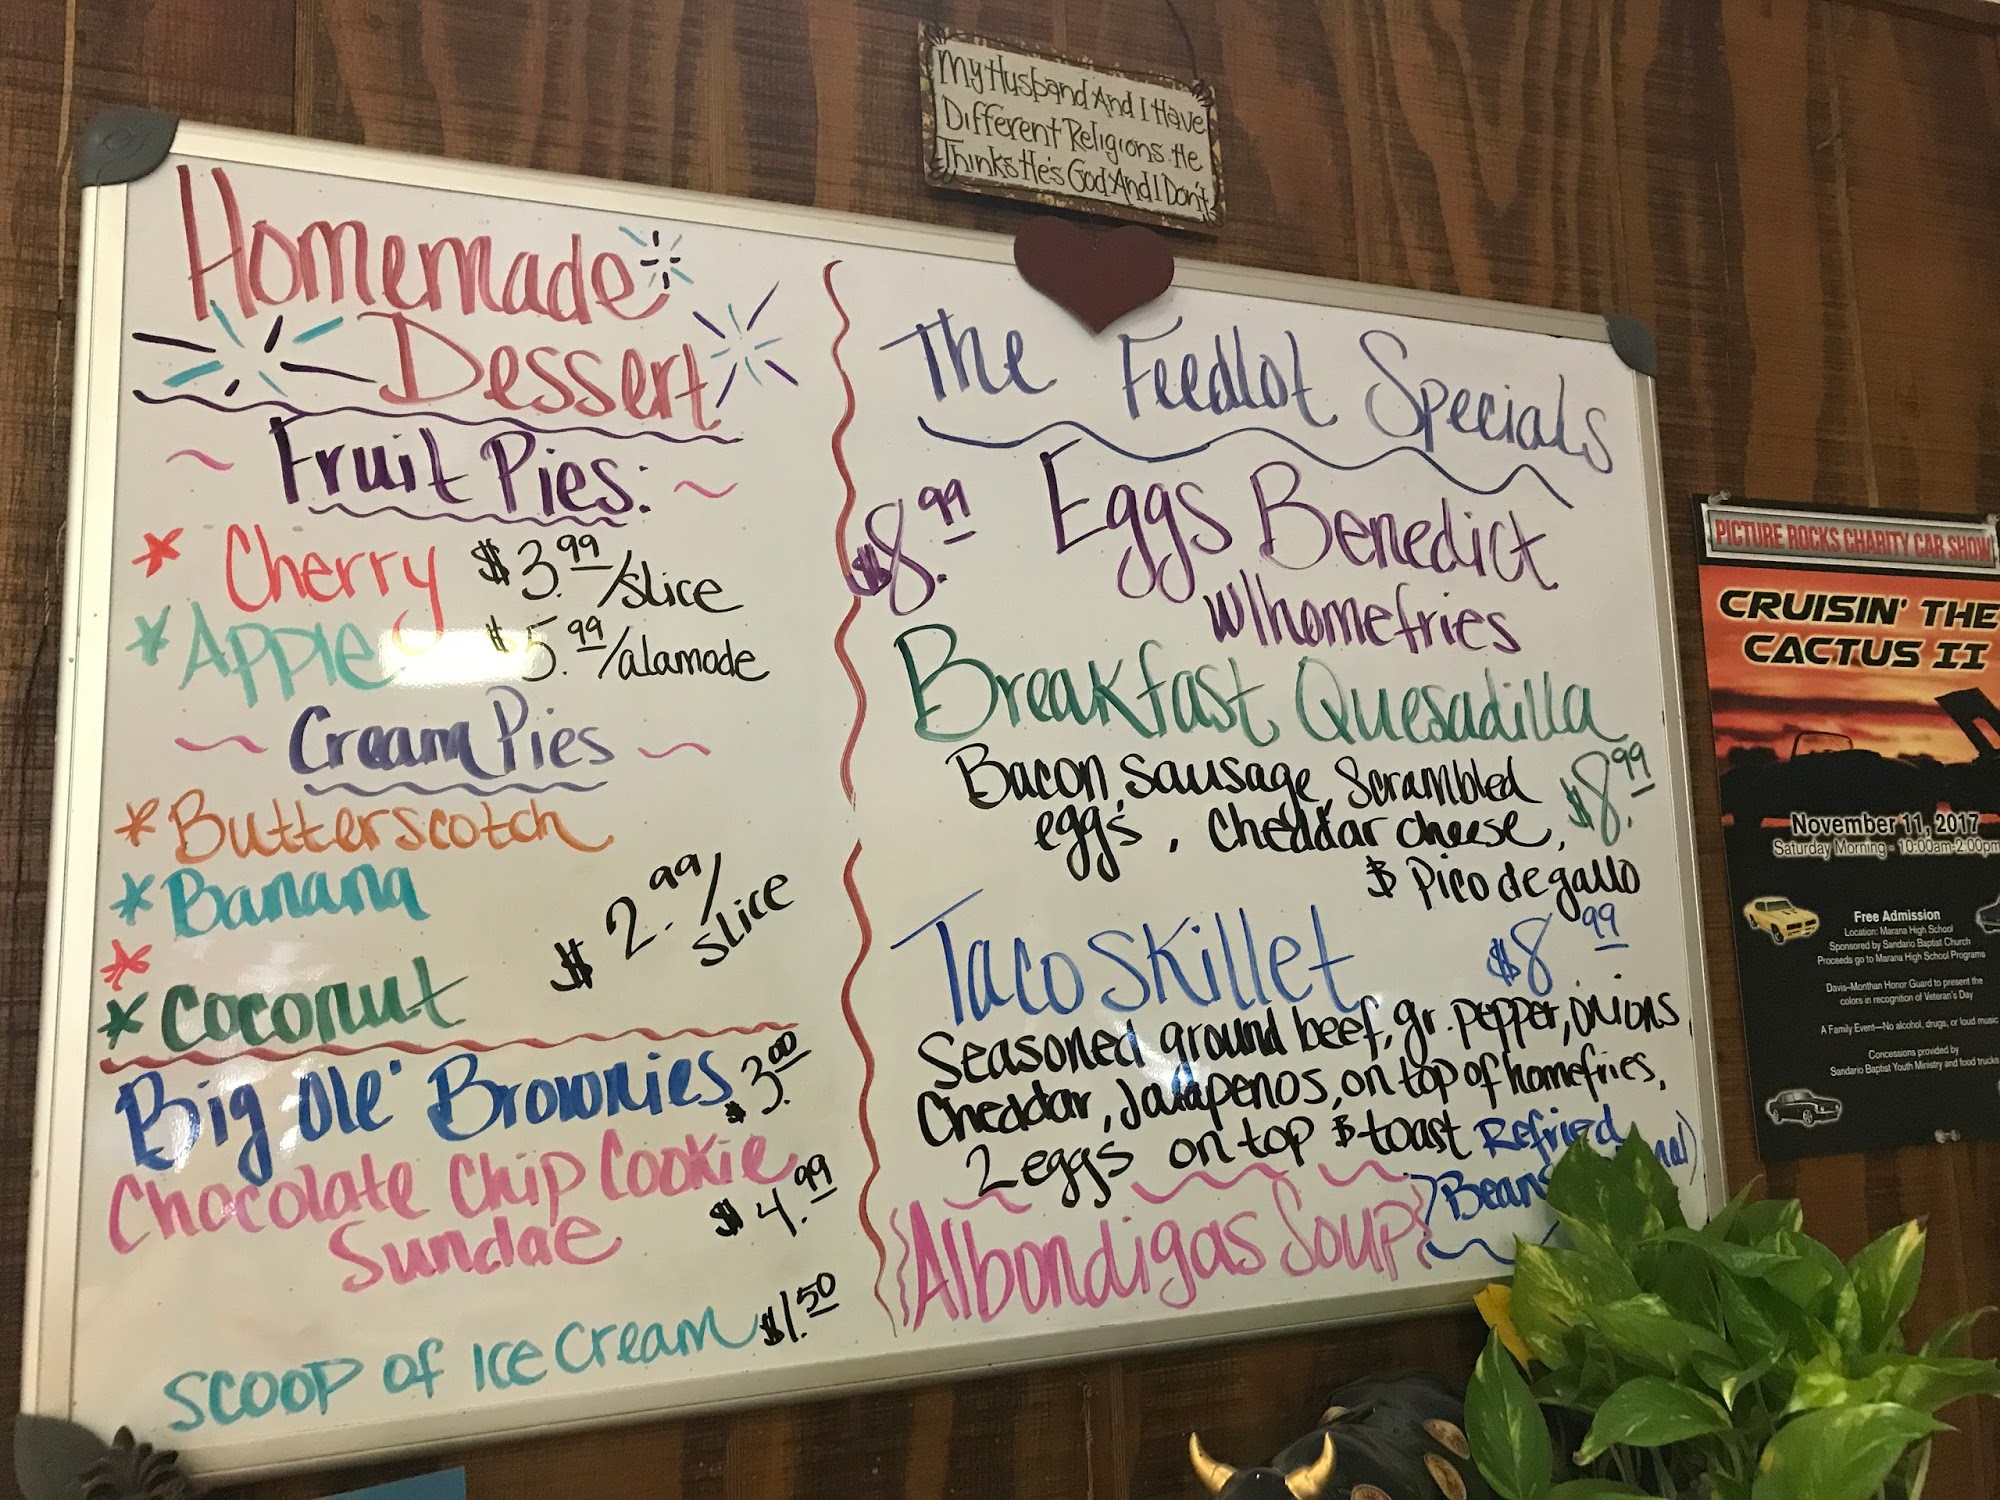 My Husband And I Have
Different Religions. He
Thinks He's God And I Don't
Homemade
Dessert
Fruit Pies:
* Cherry $3.99/slice
* Apple $5.99/alamode
~ Cream Pies ~
* Butterscotch
* Banana
*
* Coconut
$2.99/
slice
Big Ole' Brownies $3.00
Chocolate Chip Cookie
Sundae $4.99
Scoop of Ice Cream $1.50
The Feedlot Specials
$8.99 Eggs Benedict
w/homefries
Breakfast Quesadilla
Bacon, Sausage, Scrambled
eggs, Cheddar cheese, $8.99
& Pico de gallo
Taco Skillet $8.99
Seasoned ground beef, gr. pepper, onions,
Cheddar, Jalapenos, on top of homefries,
2 eggs on top & toast Refried
Beans
Albondigas Soup
PICTURE ROCKS CHARITY CAR SHOW
CRUISIN' THE
CACTUS II
November 11, 2017
Saturday Morning - 10:00am-2:00pm
Free Admission
Location: Marana High School
Sponsored by Sandario Baptist Church
Proceeds go to Marana High School Programs
Davis-Monthan Honor Guard to present the
colors in recognition of Veteran's Day
A Family Event—No alcohol, drugs, or loud music
Concessions provided by
Sandario Baptist Youth Ministry and food trucks